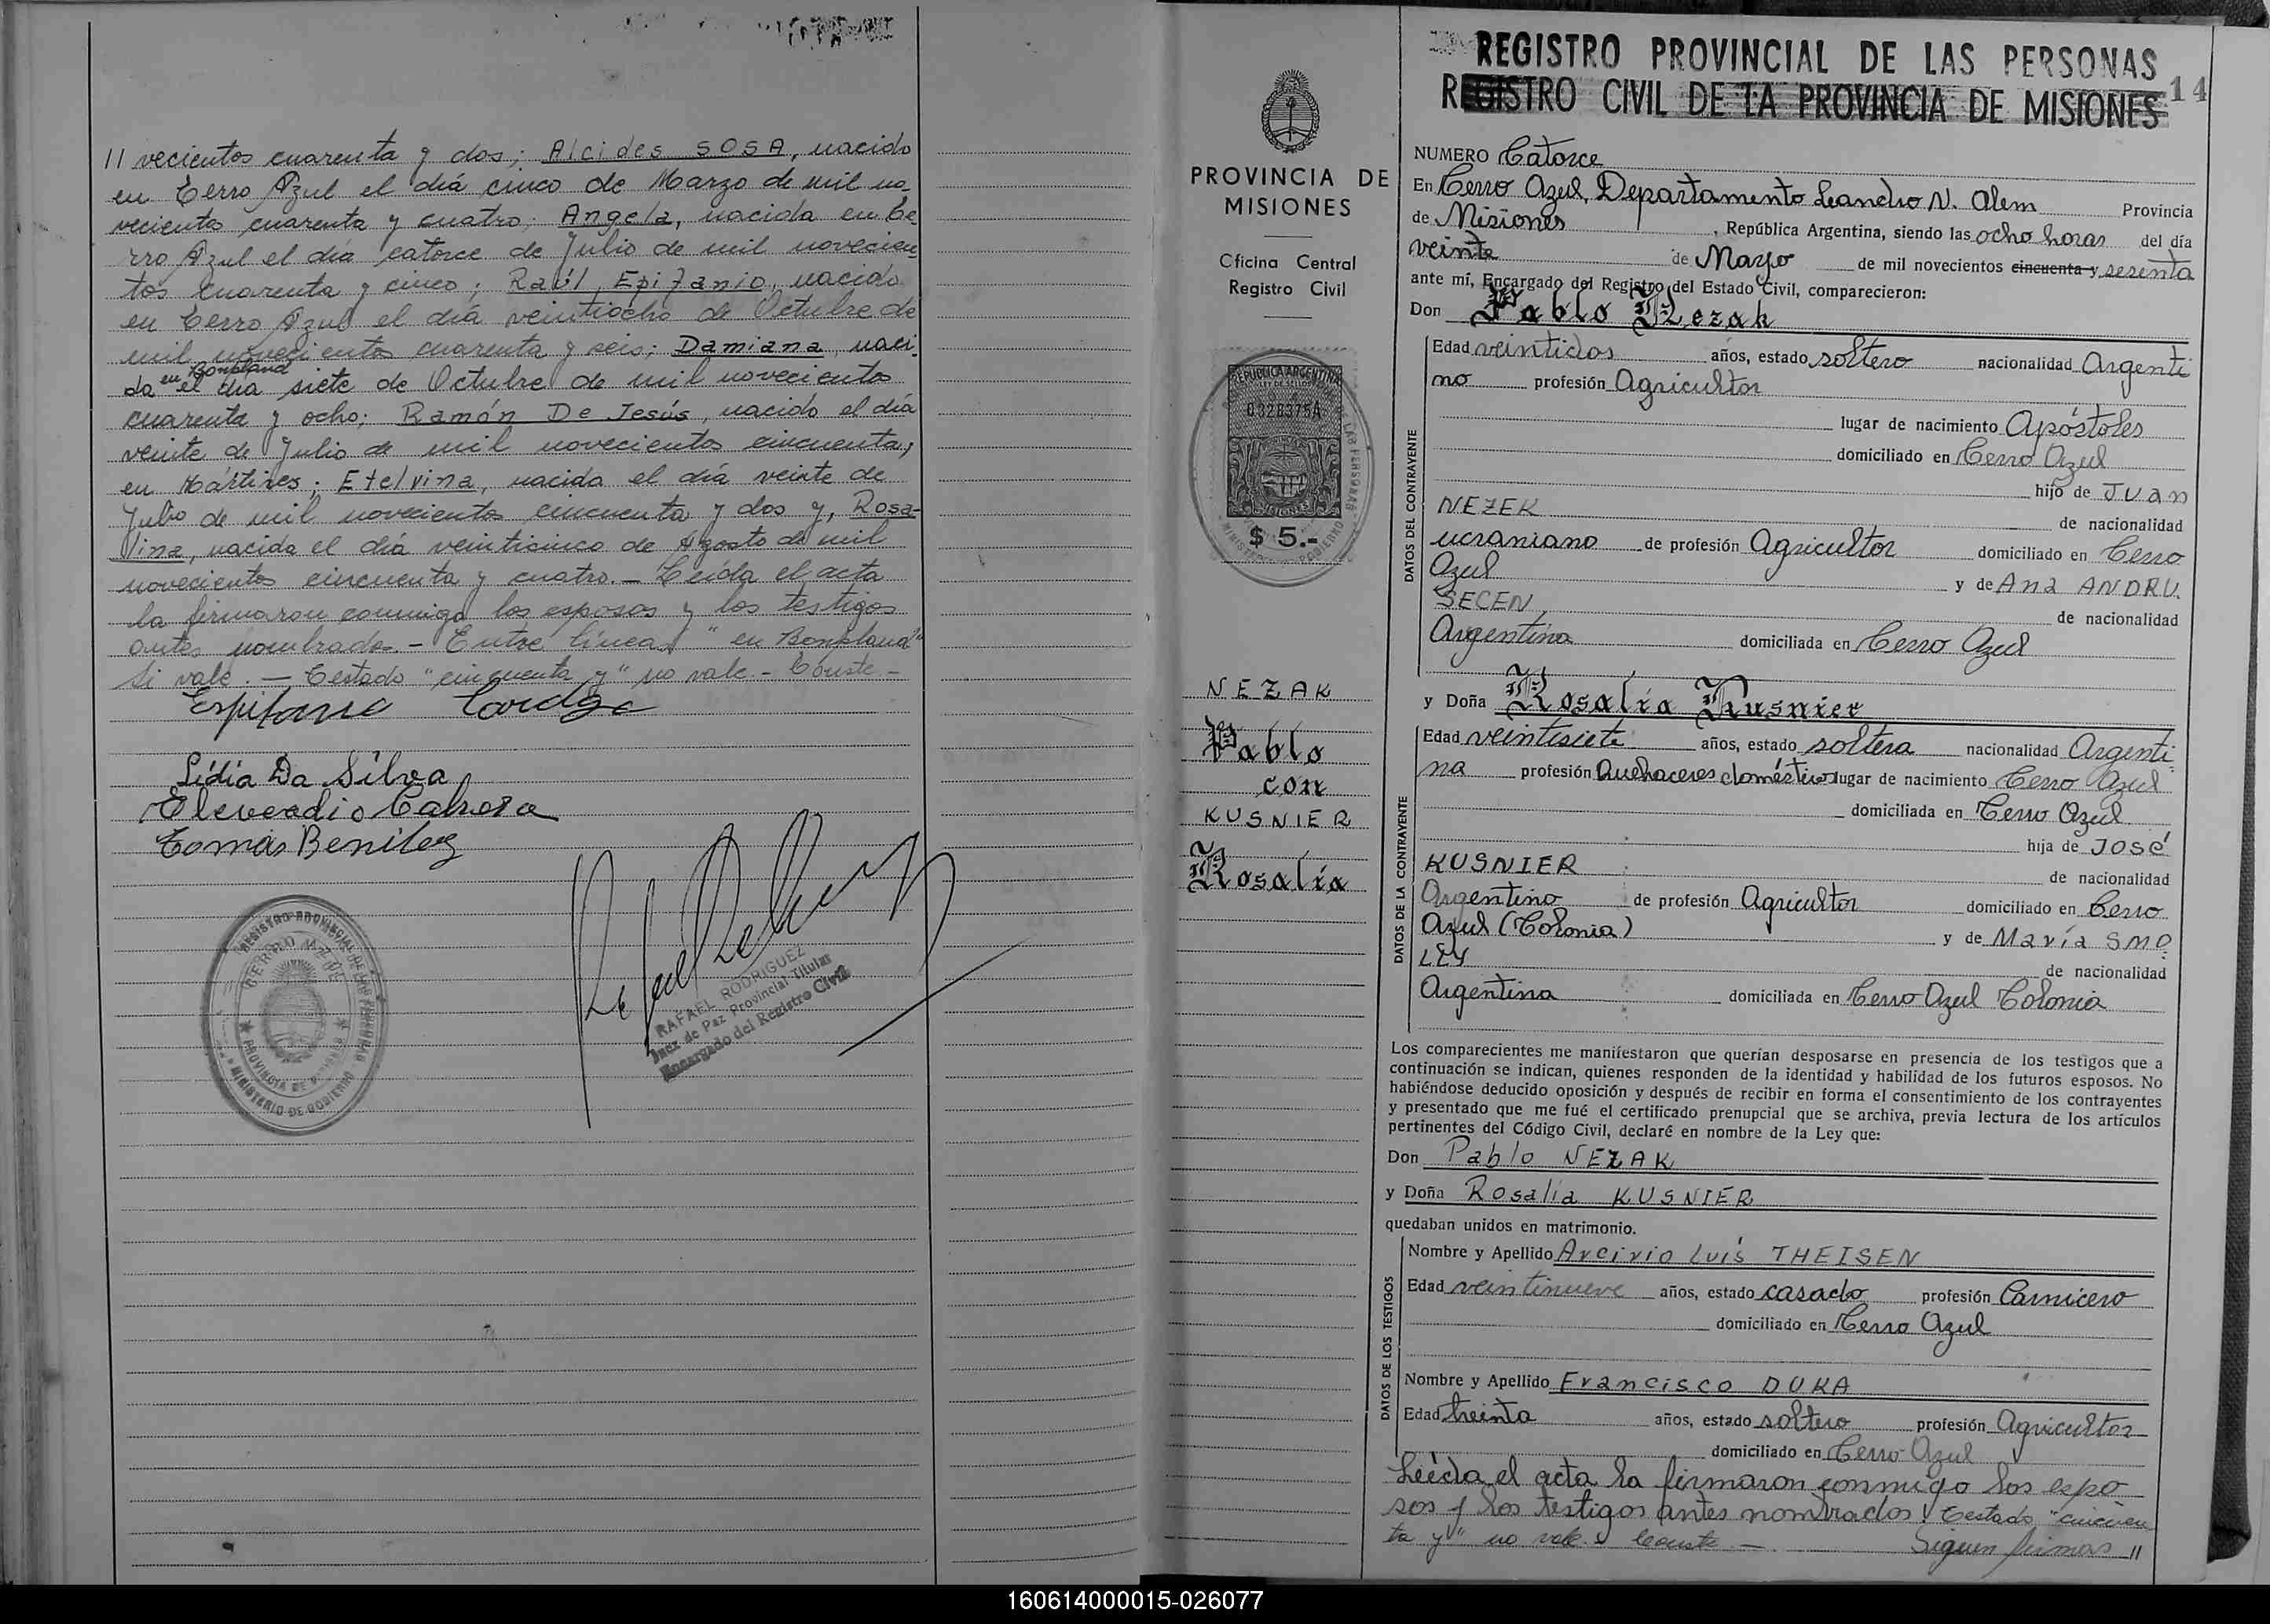 // vecientos cuarenta y dos; Alcides SOSA, nacido
en Cerro Azul el día cinco de Marzo de mil no-
vecientos cuarenta y cuatro; Angela, nacida en Ce
rro Azul el día catorce de Julio de mil novecien
tos cuarenta y cinco; Raúl Epifanio, nacido
en Cerro Azul el día veintiocho de Octubre de
mil novecientos cuarenta y seis; Damiana, naci-
en Bonpland
da el día siete de Octubre de mil novecientos
cuarenta y ocho; Ramón De Jesús, nacido el día
veinte de Julio de mil novecientos cincuenta,
en Mártires; Etelvina, nacida el día veinte de
Julio de mil novecientos cincuenta y dos y, Rosa-
lina, nacida el día veinticinco de Agosto de mil
novecientos cincuenta y cuatro. — Leída el acta
la firmaron conmigo los esposos y los testigos
antes nombrados. - Entre líneas "en Bonpland"
Si vale. — Testado "cincuenta y" no vale - Conste -
Lidia Da Silva
Cabrera
Tomás Benítez
REGISTRO PROVINCIAL DE LAS PERSONAS
CERRO AZUL
PROVINCIA DE MISIONES
MINISTERIO DE GOBIERNO
RAFAEL RODRIGUEZ
Juez de Paz Provincial Titular
Encargado del Registro Civil
PROVINCIA DE
MISIONES
Oficina Central
Registro Civil
REPUBLICA ARGENTINA
LEY DE SELLOS
0328375A
MISIONES
$ 5.-
NEZAK
Pablo
con
KUSNIER
Rosalía
REGISTRO PROVINCIAL DE LAS PERSONAS
REGISTRO CIVIL DE LA PROVINCIA DE MISIONES
14
NUMERO Catorce
En Cerro Azul, Departamento Leandro N. Alem Provincia
de Misiones, República Argentina, siendo las ocho horas del día
veinte de Mayo de mil novecientos cincuenta y sesenta
ante mí, Encargado del Registro del Estado Civil, comparecieron:
Don Pablo Nezak
DATOS DEL CONTRAYENTE
Edad veintidos años, estado soltero nacionalidad Argenti
no profesión Agricultor
lugar de nacimiento Apóstoles
domiciliado en Cerro Azul
hijo de Juan
NEZEK de nacionalidad
ucraniano de profesión Agricultor domiciliado en Cerro
Azul y de Ana ANDRU.
SECEN, de nacionalidad
Argentina domiciliada en Cerro Azul
y Doña Rosalía Kusnier
DATOS DE LA CONTRAYENTE
Edad veintisiete años, estado soltera nacionalidad Argenti
na profesión Quehaceres domésticos lugar de nacimiento Cerro Azul
domiciliada en Cerro Azul
hija de José
KUSNIER de nacionalidad
Argentino de profesión Agricultor domiciliado en Cerro
Azul (Colonia) y de María SMO
LEY de nacionalidad
Argentina domiciliada en Cerro Azul Colonia
Los comparecientes me manifestaron que querían desposarse en presencia de los testigos que a
continuación se indican, quienes responden de la identidad y habilidad de los futuros esposos. No
habiéndose deducido oposición y después de recibir en forma el consentimiento de los contrayentes
y presentado que me fué el certificado prenupcial que se archiva, previa lectura de los artículos
pertinentes del Código Civil, declaré en nombre de la Ley que:
Don Pablo NEZAK
y Doña Rosalía KUSNIER
quedaban unidos en matrimonio.
DATOS DE LOS TESTIGOS
Nombre y Apellido Arcirio Luis THEISEN
Edad veintinueve años, estado casado profesión Carnicero
domiciliado en Cerro Azul
Nombre y Apellido Francisco DUKA
Edad treinta años, estado soltero profesión Agricultor
domiciliado en Cerro Azul
Leída el acta la firmaron conmigo los espo
sos y los testigos antes nombrados. Testado "cincuen
ta y" no vale. Conste. — Siguen firmas //
160614000015-026077